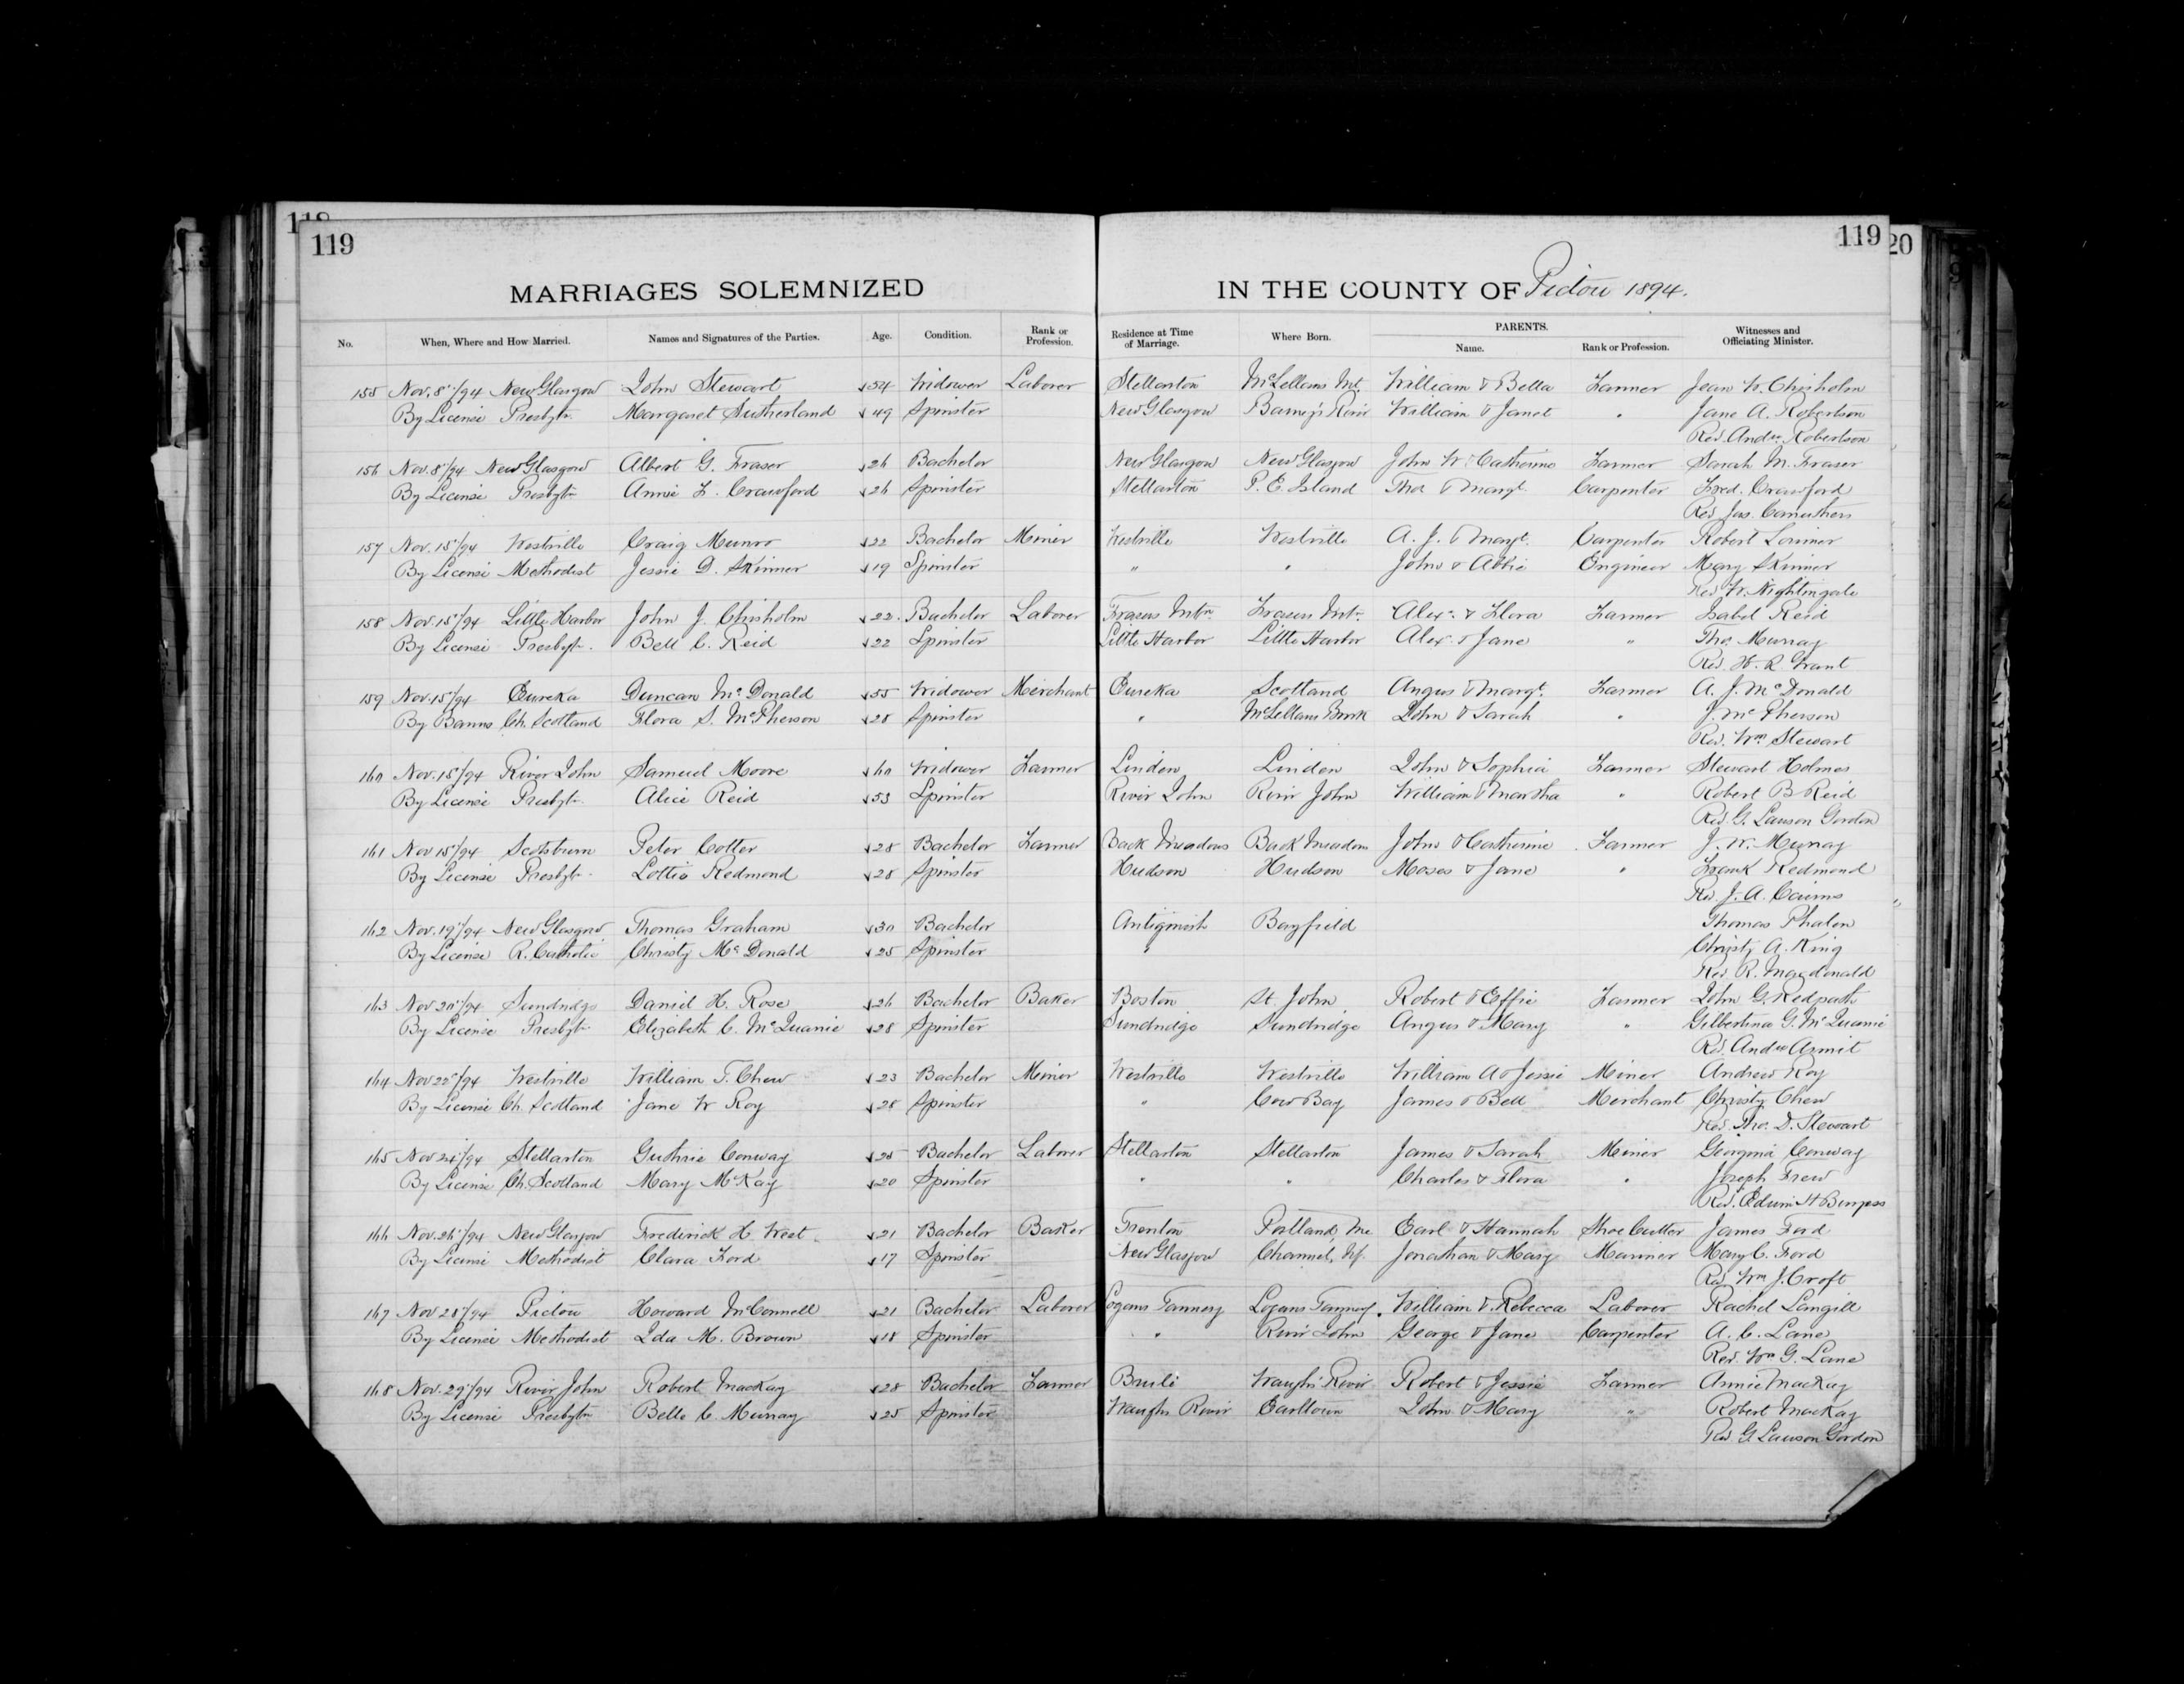 118
119
119
20
MARRIAGES SOLEMNIZED IN THE COUNTY OF Pictou 1894.
No. When, Where and How Married. Names and Signatures of the Parties. Age. Condition. Rank or Profession. Residence at Time of Marriage. Where Born. PARENTS. Name. Rank or Profession. Witnesses and Officiating Minister.
155 Nov. 8/94 New Glasgow John Stewart 54 Widower Laborer Stellarton McLellans Mt. William & Bella Farmer Jean W. Chisholm
By License Presbytn. Margaret Sutherland 49 Spinster New Glasgow Barney's River William & Janet " Jane A. Robertson
Rev. Andw. Robertson
156 Nov. 8/94 New Glasgow Albert G. Fraser 26 Bachelor New Glasgow New Glasgow John W & Catherine Farmer Sarah M. Fraser
By License Presbytn Annie F. Crawford 26 Spinster Stellarton P. E. Island Thos & Margt. Carpenter Fred. Crawford
Rev Jas. Carruthers
157 Nov. 15/94 Westville Craig Munro 22 Bachelor Miner Westville Westville A. J. & Margt. Carpenter Robert Lorimer
By License Methodist Jessie D. Skinner 19 Spinster " " John & Abbie Engineer Mary Skinner
Rev W. Nightingale
158 Nov. 15/94 Little Harbor John J. Chisholm 22 Bachelor Laborer Frasers Mtn. Frasers Mtn. Alexr. & Flora Farmer Isabel Reid
By License Presbytn. Bell C. Reid 22 Spinster Little Harbor Little Harbor Alex. & Jane " Thos. Murray
Rev. W. R. Grant
159 Nov. 15/94 Eureka Duncan McDonald 55 Widower Merchant Eureka Scotland Angus & Margt. Farmer A. J. McDonald
By Banns Ch. Scotland Flora S. McPherson 28 Spinster " McLellans Brook John & Sarah " J. McPherson
Rev. Wm. Stewart
160 Nov. 15/94 River John Samuel Moore 60 Widower Farmer Linden Linden John & Sophia Farmer Stewart Holmes
By License Presbytn. Alice Reid 53 Spinster River John River John William & Martha " Robert B Reid
Rev. G. Lawson Gordon
161 Nov 15/94 Scotsburn Peter Cotter 28 Bachelor Farmer Back Meadows Back Meadows John & Catherine Farmer J. W. Murray
By License Presbytn. Lottie Redmond 28 Spinster Hudson Hudson Moses & Jane " Frank Redmond
Rev. J. A. Cairns
162 Nov. 19/94 New Glasgow Thomas Graham 30 Bachelor Antigonish Bayfield Thomas Phalen
By License R. Catholic Christy McDonald 25 Spinster " Christy A. King
Rev. R. Macdonald
163 Nov. 20/94 Sundridge Daniel H. Rose 26 Bachelor Baker Boston St. John Robert & Effie Farmer John G. Redpath
By License Presbytn Elizabeth C. McQuarrie 28 Spinster Sundridge Sundridge Angus & Mary " Gilbertina G. McQuarrie
Rev. Andw Armit
164 Nov 22/94 Westville William T. Chew 23 Bachelor Miner Westville Westville William A & Jessie Miner Andrew Roy
By License Ch. Scotland Jane W Roy 28 Spinster " Cow Bay James & Bell Merchant Christy Chew
Rev. Thos. D. Stewart
165 Nov 24/94 Stellarton Guthrie Conway 25 Bachelor Laborer Stellarton Stellarton James & Sarah Miner Georgina Conway
By License Ch. Scotland Mary McKay 20 Spinster " " Charles & Flora " Joseph Frew
Rev. Edwin H Burgess
166 Nov. 26/94 New Glasgow Frederick H. West 21 Bachelor Baker Trenton Portland, Me Earl & Hannah Shoe Cutter James Ford
By License Methodist Clara Ford 17 Spinster New Glasgow Channel, Nf. Jonathan & Mary Mariner Mary C. Ford
Rev Wm J. Croft
167 Nov 28/94 Pictou Howard McConnell 21 Bachelor Laborer Logans Tannery Logans Tannery William & Rebecca Laborer Rachel Langill
By License Methodist Ida M. Brown 18 Spinster " River John George & Jane Carpenter A. C. Lane
Rev. Wm G. Lane
168 Nov. 29/94 River John Robert MacKay 28 Bachelor Farmer Brule Waughs River Robert & Jessie Farmer Annie MacKay
By License Presbytn Belle C. Murray 25 Spinster Waughs River Earltown John & Mary " Robert MacKay
Rev G Lawson Gordon